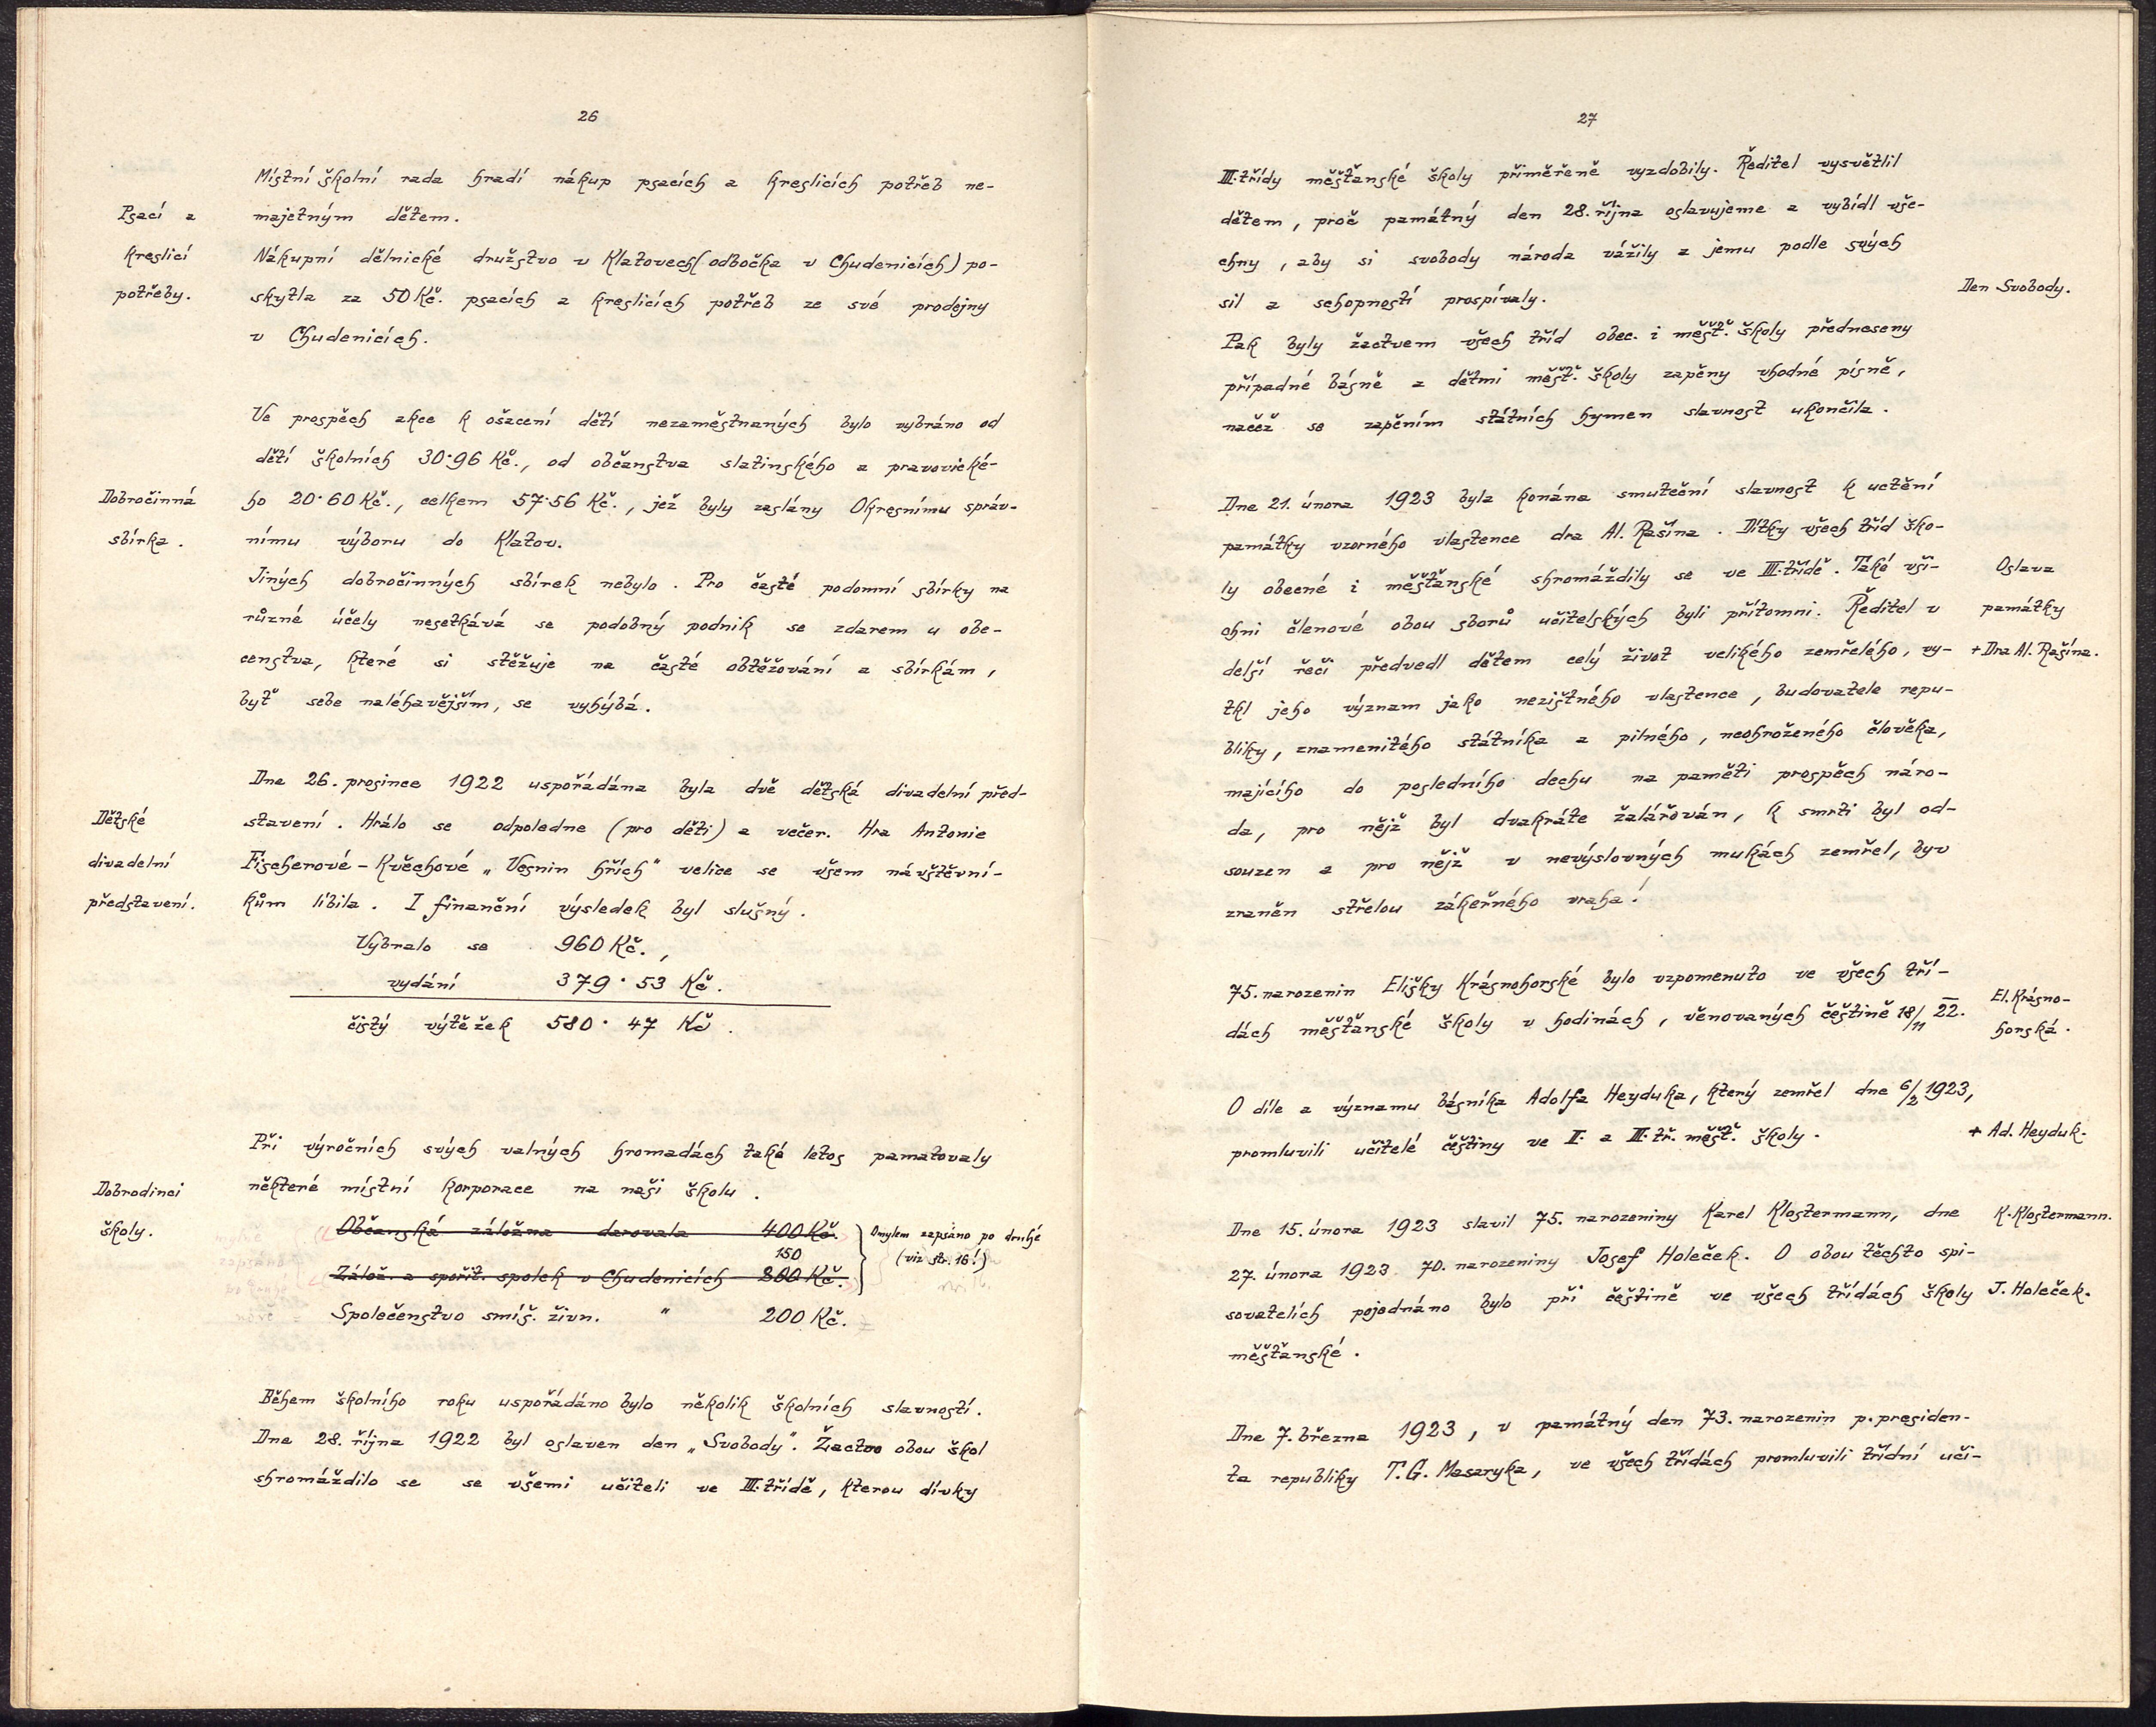 26
Místní školní rada hradí nákup psacích a kreslicích potřeb ne-
Psací a
majetným dětem.
kreslicí
Nákupní dělnické družstvo v Klatovech (odbočka v Chudenicích) po-
potřeby.
skytla za 50 Kč. psacích a kreslicích potřeb ze své prodejny
v Chudenicích.
Ve prospěch akce k ošacení dětí nezaměstnaných bylo vybráno od
dětí školních 30·96 Kč., od občanstva slatinského a pravovické-
Dobročinná
ho 20·60 Kč., celkem 57·56 Kč., jež byly zaslány Okresnímu správ-
sbírka.
nímu výboru do Klatov.
Jiných dobročinných sbírek nebylo. Pro časté podomní sbírky na
různé účely nesetkává se podobný podnik se zdarem u obe-
censtva, které si stěžuje na časté obtěžování a sbírkám,
byť sebe naléhavějším, se vyhýbá.
Dne 26. prosince 1922 uspořádána byla dvě dětská divadelní před-
Dětské
stavení. Hrálo se odpoledne (pro děti) a večer. Hra Antonie
divadelní
Fischerové - Kvěchové „Vesnin hřích" velice se všem návštěvní-
představení.
kům líbila. I finanční výsledek byl slušný.
Vybralo se 960 Kč.,
vydání 379·53 Kč.
čistý výtěžek 580·47 Kč.
Při výročních svých valných hromadách také letos pamatovaly
Dobrodinci
některé místní korporace na naši školu.
školy.
Občanská záložna darovala 400 Kč.
Omylem zapsáno po druhé
150
(viz str. 16!)
Zálož. a spořit. spolek v Chudenicích 800 Kč.
Společenstvo smíš. živn. " 200 Kč.
Během školního roku uspořádáno bylo několik školních slavností.
Dne 28. října 1922 byl oslaven den „Svobody". Žactvo obou škol
shromáždilo se se všemi učiteli ve III. třídě, kterou dívky
27
III. třídy měšťanské školy přiměřeně vyzdobily. Ředitel vysvětlil
dětem, proč památný den 28. října oslavujeme a vybídl vše-
chny, aby si svobody národa vážily a jemu podle svých
Den Svobody.
sil a schopností prospívaly.
Pak byly žactvem všech tříd obec. i měšť. školy předneseny
případné básně a dětmi měšť. školy zapěny vhodné písně,
načež se zapěním státních hymen slavnost ukončila.
Dne 21. února 1923 byla konána smuteční slavnost k uctění
památky vzorného vlastence dra Al. Rašína. Dítky všech tříd ško-
ly obecné i měšťanské shromáždily se ve III. třídě. Také vši-
Oslava
chni členové obou sborů učitelských byli přítomni. Ředitel v
památky
delší řeči předvedl dětem celý život velikého zemřelého, vy-
+ Dra Al. Rašína.
tkl jeho význam jako nezištného vlastence, budovatele repu-
bliky, znamenitého státníka a pilného, neohroženého člověka,
majícího do posledního dechu na paměti prospěch náro-
da, pro nějž byl dvakráte žalářován, k smrti byl od-
souzen a pro nějž v nevýslovných mukách zemřel, byv
zraněn střelou zákeřného vraha!
75. narozenin Elišky Krásnohorské bylo vzpomenuto ve všech tří-
El. Krásno-
dách měšťanské školy v hodinách, věnovaných češtině 18/11 22.
horská.
O díle a významu básníka Adolfa Heyduka, který zemřel dne 6/2 1923,
promluvili učitelé češtiny ve II. a III. tř. měšť. školy.
+ Ad. Heyduk.
Dne 15. února 1923 slavil 75. narozeniny Karel Klostermann, dne
K. Klostermann.
27. února 1923 70. narozeniny Josef Holeček. O obou těchto spi-
sovatelích pojednáno bylo při češtině ve všech třídách školy
J. Holeček.
měšťanské.
Dne 7. března 1923, v památný den 73. narozenin p. presiden-
ta republiky T. G. Masaryka, ve všech třídách promluvili třídní uči-